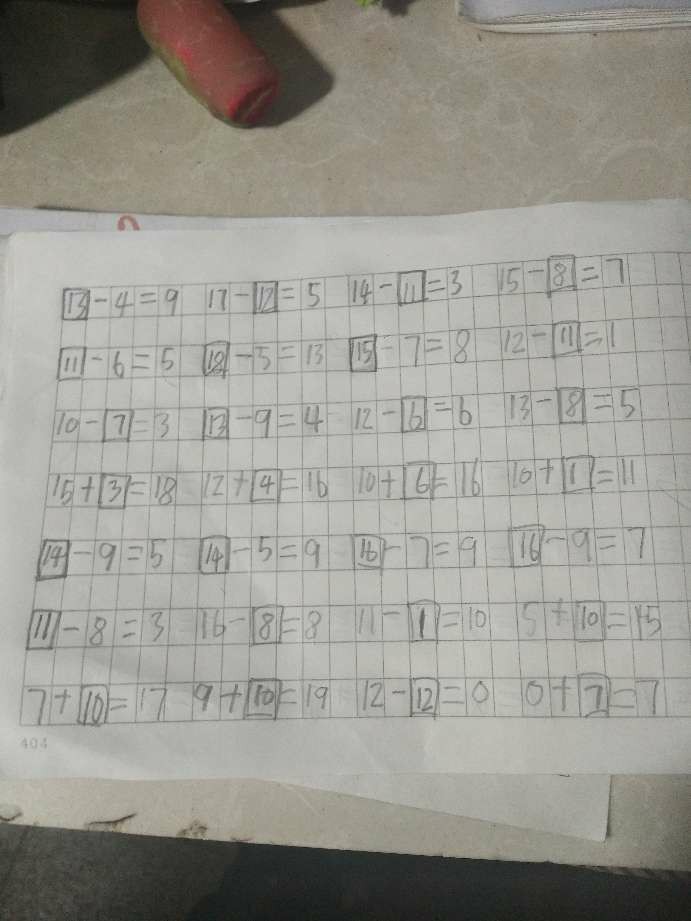 13 - 4 = 9 17 - 12 = 5 14 - 11 = 3 15 - 8 = 7
11 - 6 = 5 18 - 5 = 13 15 - 7 = 8 12 - 11 = 1
10 - 7 = 3 13 - 9 = 4 12 - 6 = 6 13 - 8 = 5
15 + 3 = 18 12 + 4 = 16 10 + 6 = 16 10 + 1 = 11
14 - 9 = 5 14 - 5 = 9 16 - 7 = 9 16 - 9 = 7
11 - 8 = 3 16 - 8 = 8 11 - 1 = 10 5 + 10 = 15
7 + 10 = 17 9 + 10 = 19 12 - 12 = 0 0 + 7 = 7
404